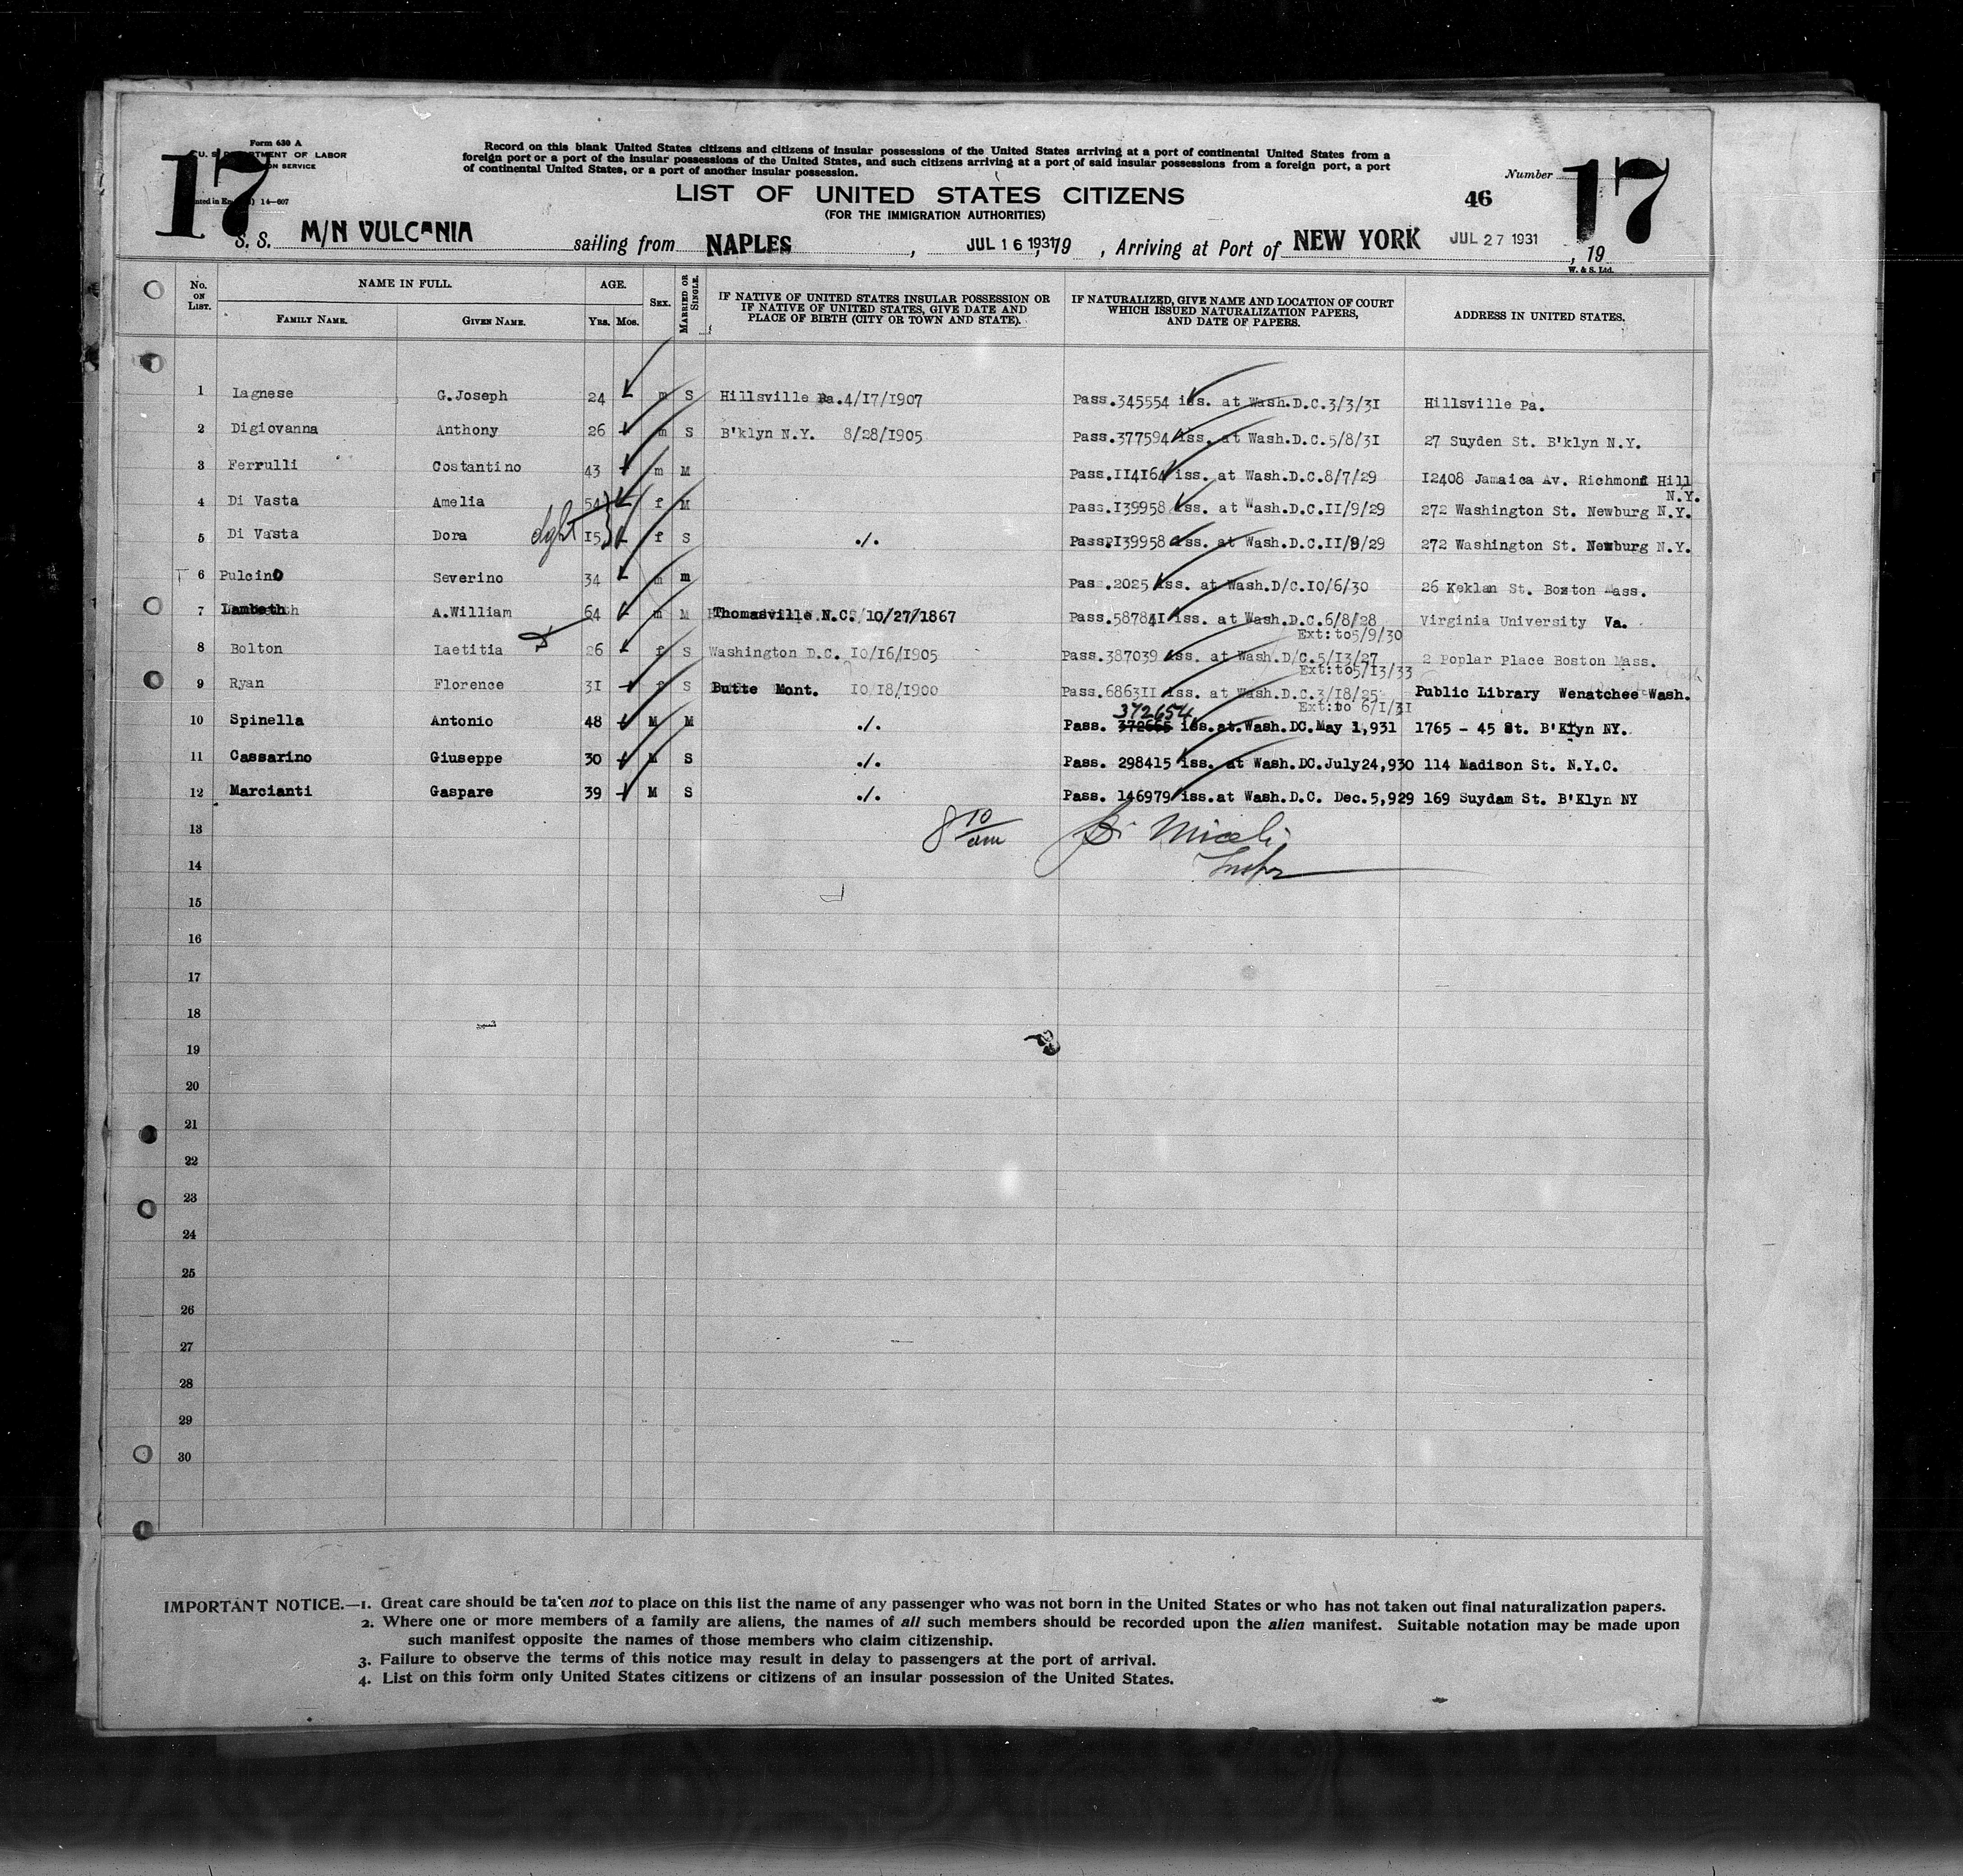 17
Form 630 A
U. S. DEPARTMENT OF LABOR
SERVICE
14—607
Record on this blank United States citizens and citizens of insular possessions of the United States arriving at a port of continental United States from a
foreign port or a port of the insular possessions of the United States, and such citizens arriving at a port of said insular possessions from a foreign port, a port
of continental United States, or a port of another insular possession.
LIST OF UNITED STATES CITIZENS
(FOR THE IMMIGRATION AUTHORITIES)
Number 17
46
S. S. M/N VULCANIA sailing from NAPLES, JUL 16 1931, 19 , Arriving at Port of NEW YORK JUL 27 1931, 19
W. & S. Ltd.
No. ON LIST. NAME IN FULL. AGE. SEX. MARRIED OR SINGLE. IF NATIVE OF UNITED STATES INSULAR POSSESSION OR IF NATIVE OF UNITED STATES, GIVE DATE AND PLACE OF BIRTH (CITY OR TOWN AND STATE). IF NATURALIZED, GIVE NAME AND LOCATION OF COURT WHICH ISSUED NATURALIZATION PAPERS, AND DATE OF PAPERS. ADDRESS IN UNITED STATES.
FAMILY NAME. GIVEN NAME. YRS. MOS.
1 Iagnese G.Joseph 24 m S Hillsville Pa.4/17/1907 Pass.345554 iss. at Wash.D.C.3/3/31 Hillsville Pa.
2 Digiovanna Anthony 26 m S B'klyn N.Y. 8/28/1905 Pass.377594 iss. at Wash.D.C.5/8/31 27 Suyden St. B'klyn N.Y.
3 Ferrulli Costantino 43 m M Pass.114164 iss. at Wash.D.C.8/7/29 12408 Jamaica Av. Richmond Hill
N.Y.
4 Di Vasta Amelia 54 f M Pass.139958 iss. at Wash.D.C.11/9/29 272 Washington St. Newburg N.Y.
5 Di Vasta Dora dght 15 f S ./. Pass.139958 iss. at Wash.D.C.11/9/29 272 Washington St. Newburg N.Y.
6 Pulcino Severino 34 m m Pas.2025 iss. at Wash.D/C.10/6/30 26 Keklan St. Boston Mass.
7 Lambeth A.William 64 m M Thomasville N.C. 10/27/1867 Pass.587841 iss. at Wash.D.C.6/8/28 Virginia University Va.
Ext:to5/9/30
8 Bolton Laetitia 26 f S Washington D.C. 10/16/1905 Pass.387039 iss. at Wash.D/C.5/13/27 2 Poplar Place Boston Mass.
Ext:to5/13/33
9 Ryan Florence 31 f S Butte Mont. 10/18/1900 Pass.686311 iss. at Wash.D.C.3/18/25 Public Library Wenatchee Wash.
Ext:to 6/1/31
372654
10 Spinella Antonio 48 M M ./. Pass. 372655 iss.at.Wash.DC.May 1,931 1765 - 45 St. B'Klyn NY.
11 Cassarino Giuseppe 30 M S ./. Pass. 298415 iss. at Wash.DC.July24,930 114 Madison St. N.Y.C.
12 Marcianti Gaspare 39 M S ./. Pass. 146979 iss.at Wash.D.C. Dec.5,929 169 Suydam St. B'Klyn NY
13 8 10/am Miceli
14 Inspr
15
16
17
18
19
20
21
22
23
24
25
26
27
28
29
30
IMPORTANT NOTICE.—1. Great care should be taken not to place on this list the name of any passenger who was not born in the United States or who has not taken out final naturalization papers.
2. Where one or more members of a family are aliens, the names of all such members should be recorded upon the alien manifest. Suitable notation may be made upon
such manifest opposite the names of those members who claim citizenship.
3. Failure to observe the terms of this notice may result in delay to passengers at the port of arrival.
4. List on this form only United States citizens or citizens of an insular possession of the United States.